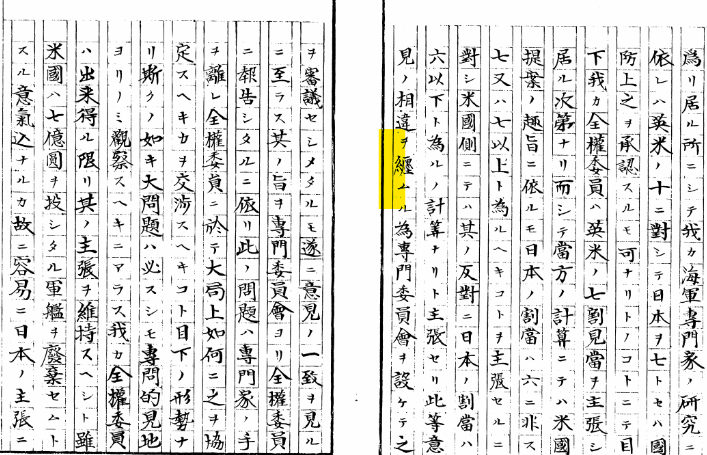 為リ居ル所ニシテ我カ海軍専門家ノ研究ニ
依レハ英米ノ十ニ對シテ日本ヲ七トセハ國
防上之ヲ承認スルモ可ナリトノコトニテ目
下我カ全權委員ハ英米ノ七割見當ヲ主張シ
居ル次第ナリ而シテ當方ノ計算ニテハ米國
提案ノ趣旨ニ依ルモ日本ノ割當ハ六ニ非ス
七又ハ七以上ト為ルヘキコトヲ主張セルニ
對シ米國側ニテハ其ノ反對ニ日本ノ割當ハ
六以下ト為ルノ計算ナリト主張セリ此等意
見ノ相違ヲ纏ムル為専門委員會ヲ設ケテ之
ヲ審議セシメタルモ遂ニ意見ノ一致ヲ見ル
ニ至ラス其ノ旨ヲ専門委員會ヨリ全權委員
ニ報告シタルニ依リ此ノ問題ハ専門家ノ手
ヲ離レ全權委員ニ於テ大局上如何ニ之ヲ協
定スヘキカヲ交渉スヘキコト目下ノ形勢ナ
リ斯クノ如キ大問題ハ必スシモ專問的見地
ヨリノミ觀察スヘキニアラス我カ全權委員
ハ出来得ル限リ其ノ主張ヲ維持スヘシト雖
米國ハ七億圓ヲ投シタル軍艦ヲ廢棄セムト
スル意氣込ナルカ故ニ容易ニ日本ノ主張ニ